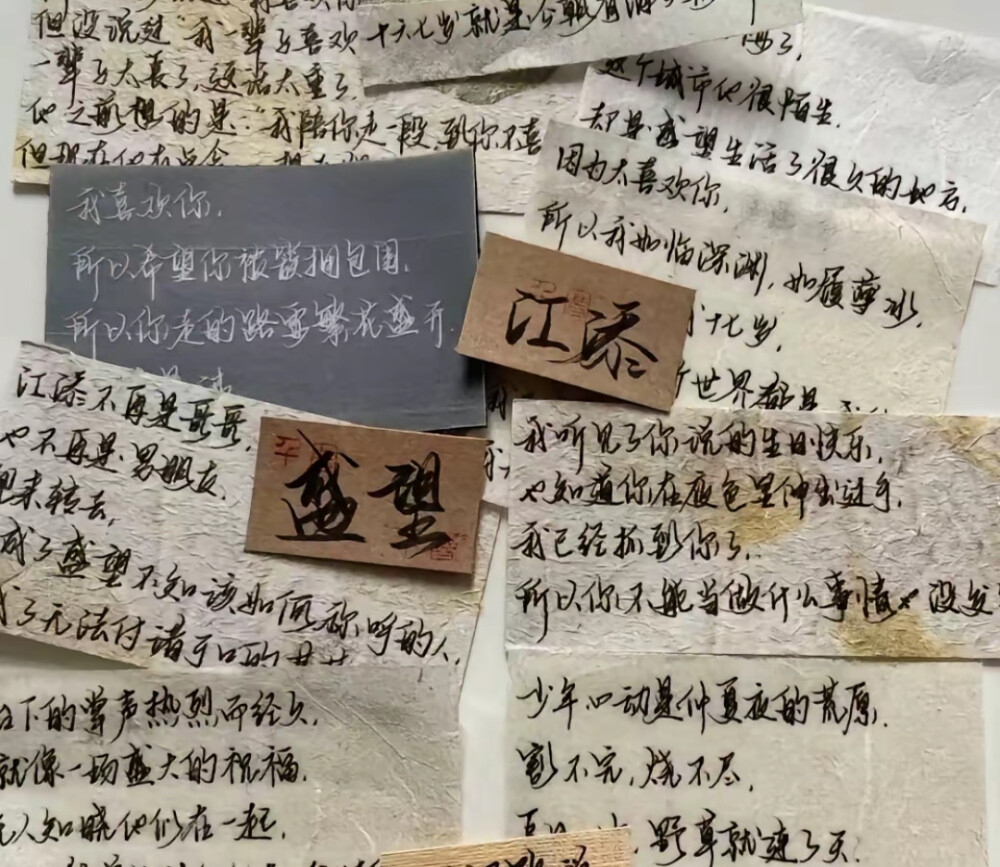 但没说过“我一辈子喜欢
一辈子太长了,这话太重了,
他之前想的是:“我陪你走一段,到你不喜
但现在他有点贪
十六七岁就是
这个城市他很陌生,
却是盛望生活了很久的地方,
我喜欢你,
所以希望你被簇拥包围,
所以你走的路要繁花盛开,
因为太喜欢你,
所以我如临深渊,如履薄冰,
十七岁,
世界都是
江添
江添不再是哥哥,
也不再是男朋友,
兜来转去,
成了盛望不知该如何称呼的人,
成了无法付诸于口的
盛望
我听见了你说的生日快乐,
也知道你在夜色里伸出过手,
我已经抓到你了,
所以你不能当做什么事情也没发
台下的掌声热烈而经久,
就像一场盛大的祝福,
无人知晓他们在一起,
少年心动是仲夏夜的荒原,
割不完,烧不尽,
野草就连了天,